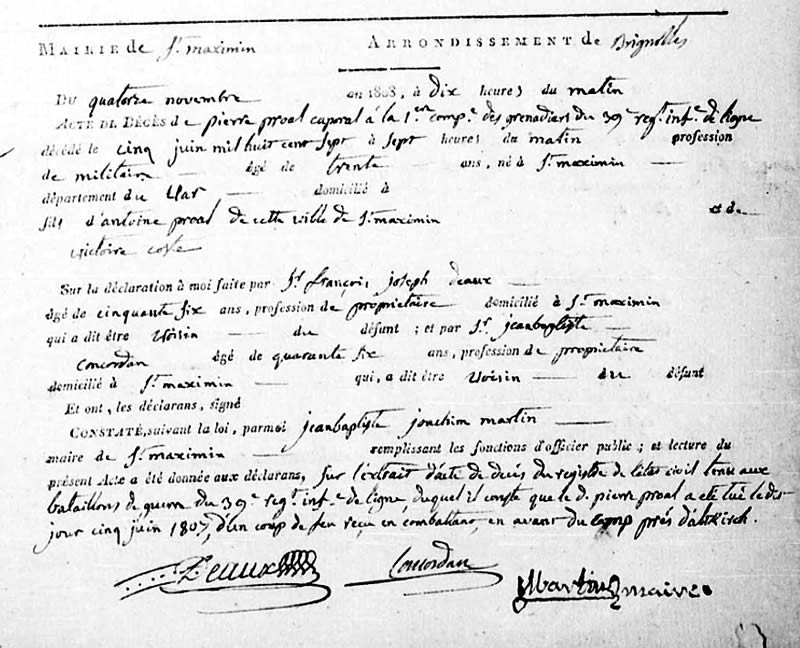 MAIRIE de St. maximin ARRONDISSEMENT de Brignolles
DU quatorze novembre an 1808, à dix heures du matin
ACTE DE DÉCÈS de pierre proal caporal à la 1ere comp.e des grenadiers du 39e regt. inf.e de ligne
décédé le cinq juin mil huit cent sept à sept heures du matin profession
de militaire — âgé de trente — ans, né à St. maximin —
département du Var — domicilié à
fils d'antoine proal de cette ville de St. maximin et de
victoire coste
Sur la déclaration à moi faite par Sr. françois joseph deaux —
âgé de cinquante six ans, profession de propriétaire domicilié à St. maximin
qui a dit être Voisin — du défunt ; et par Sr. jeanbaptiste —
concordan âgé de quarante six ans, profession de propriétaire
domicilié à St. maximin — qui, a dit être Voisin — du défunt
Et ont, les déclarans, signé
CONSTATÉ, suivant la loi, par moi jeanbaptiste joachim martin —
maire de St. maximin — remplissant les fonctions d'officier public ; et lecture du
présent Acte a été donnée aux déclarans, sur l'extrait d'acte de decés du registre de l'état civil tenu aux
bataillons de guerre du 39e regt. inf.e de ligne, duquel il conste que le d. pierre proal a eté tué le dit
jour cinq juin 1807, d'un coup de feu reçu en combattant, en avant du camp prés d'altkirch.
Deaux Concordan Martin maire